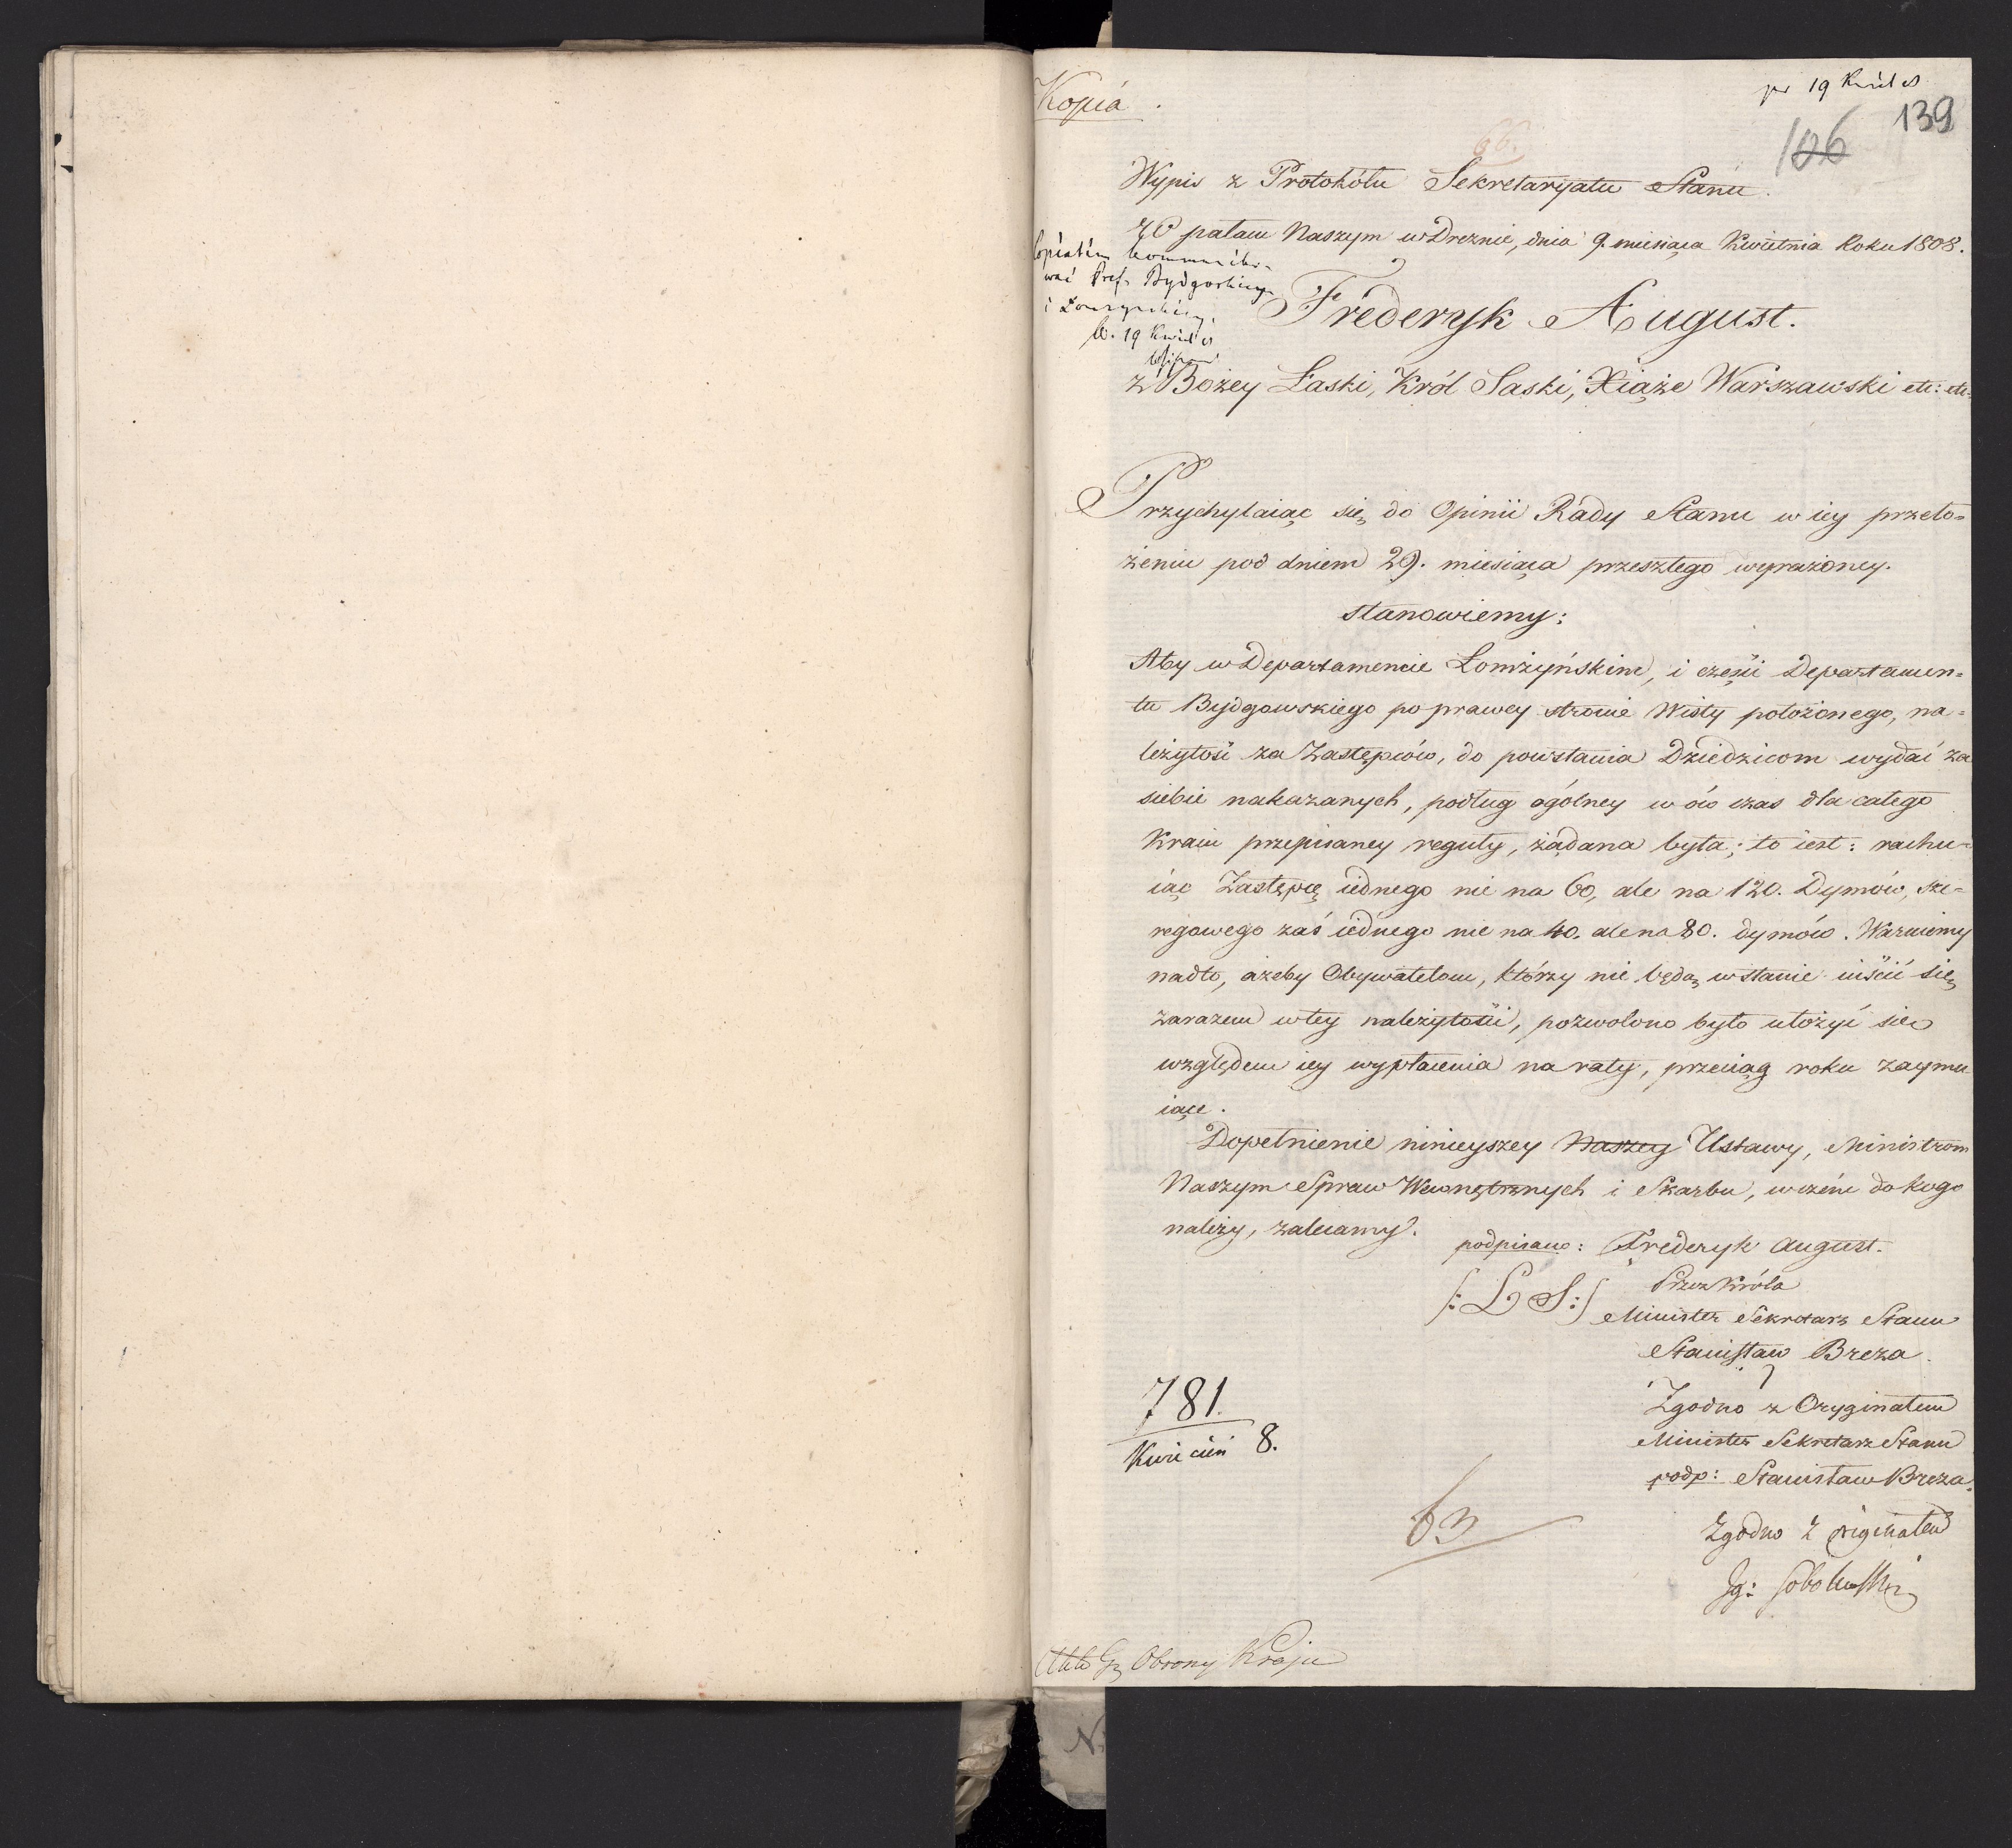 Kopia.
pr 19 Kwiet 8
139
106
66.
Wypis z Protokółu Sekretaryatu Stanu.
W pałacu Naszym w Dreznie, dnia 9. miesiąca Kwietnia Roku 1808.
kommuniko-
wać Pref. Bydgoskiemu
i Łomzynskiemu
19 Kwiet 8
Frederyk August.
z Bożey Łaski, Król Saski, Xiąże Warszawski etc: etc:
Przychylaiąc się do Opinii Rady Stanu w iey przeło-
żeniu pod dniem 29. miesiąca przeszłego wyrażoney.
stanowiemy:
Aby w Departamencie Łomżyńskim, i części Departamen-
tu Bydgowskiego po prawey stronie Wisły położonego, na-
leżytość za Zastępców, do powstania Dziedzicom wydać za
siebie nakazanych, podług ogólney w ów czas dla całego
Kraiu przepisaney reguły, żądana była; to iest: rachu-
iąc Zastępcę iednego nie na 60, ale na 120. Dymów, sze-
regowego zaś iednego nie na 40. ale na 80. dymów. Waruiemy
nadto, ażeby Obywatelom, którzy nie będą w stanie uiścić się
zarazem w tey należytości, pozwolono było ułożyć się
względem iey wypłacenia na raty, przeciąg roku zaymu-
iące.
Dopełnienie ninieyszey Naszey Ustawy, Ministrom
Naszym Spraw Wewnętrznych i Skarbu, w czém do kogo
należy, zalecamy.
podpisano: Frederyk August.
/: L S :/
Przez Króla
Minister Sekretarz Stanu
Stanisław Breza.
781.
Kwiecień 8.
Zgodno z Oryginałem
Minister Sekretarz Stanu
podp: Stanisław Breza.
63
Zgodno z originałem
Jg: Sobolewski
Obrony Kraju
N.